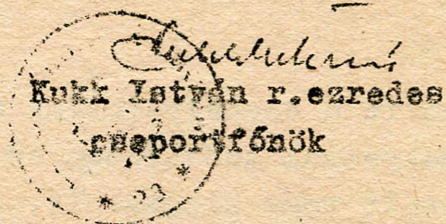 Kukk István r.ezredes
csoportfőnök
* 23 *